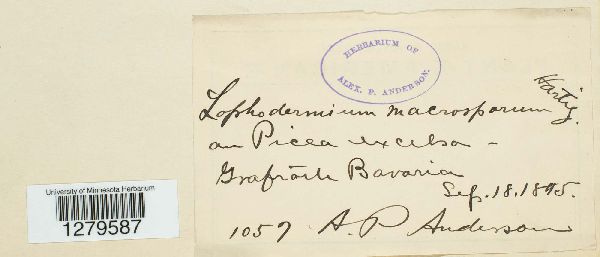 HERBARIUM OF
ALEX. P. ANDERSON.
Lophodermium macrosporum Hartig.
on Picea excelsa -
Grafrath Bavaria
Sep. 18. 1895.
1057 A. P. Anderson
University of Minnesota Herbarium
1279587